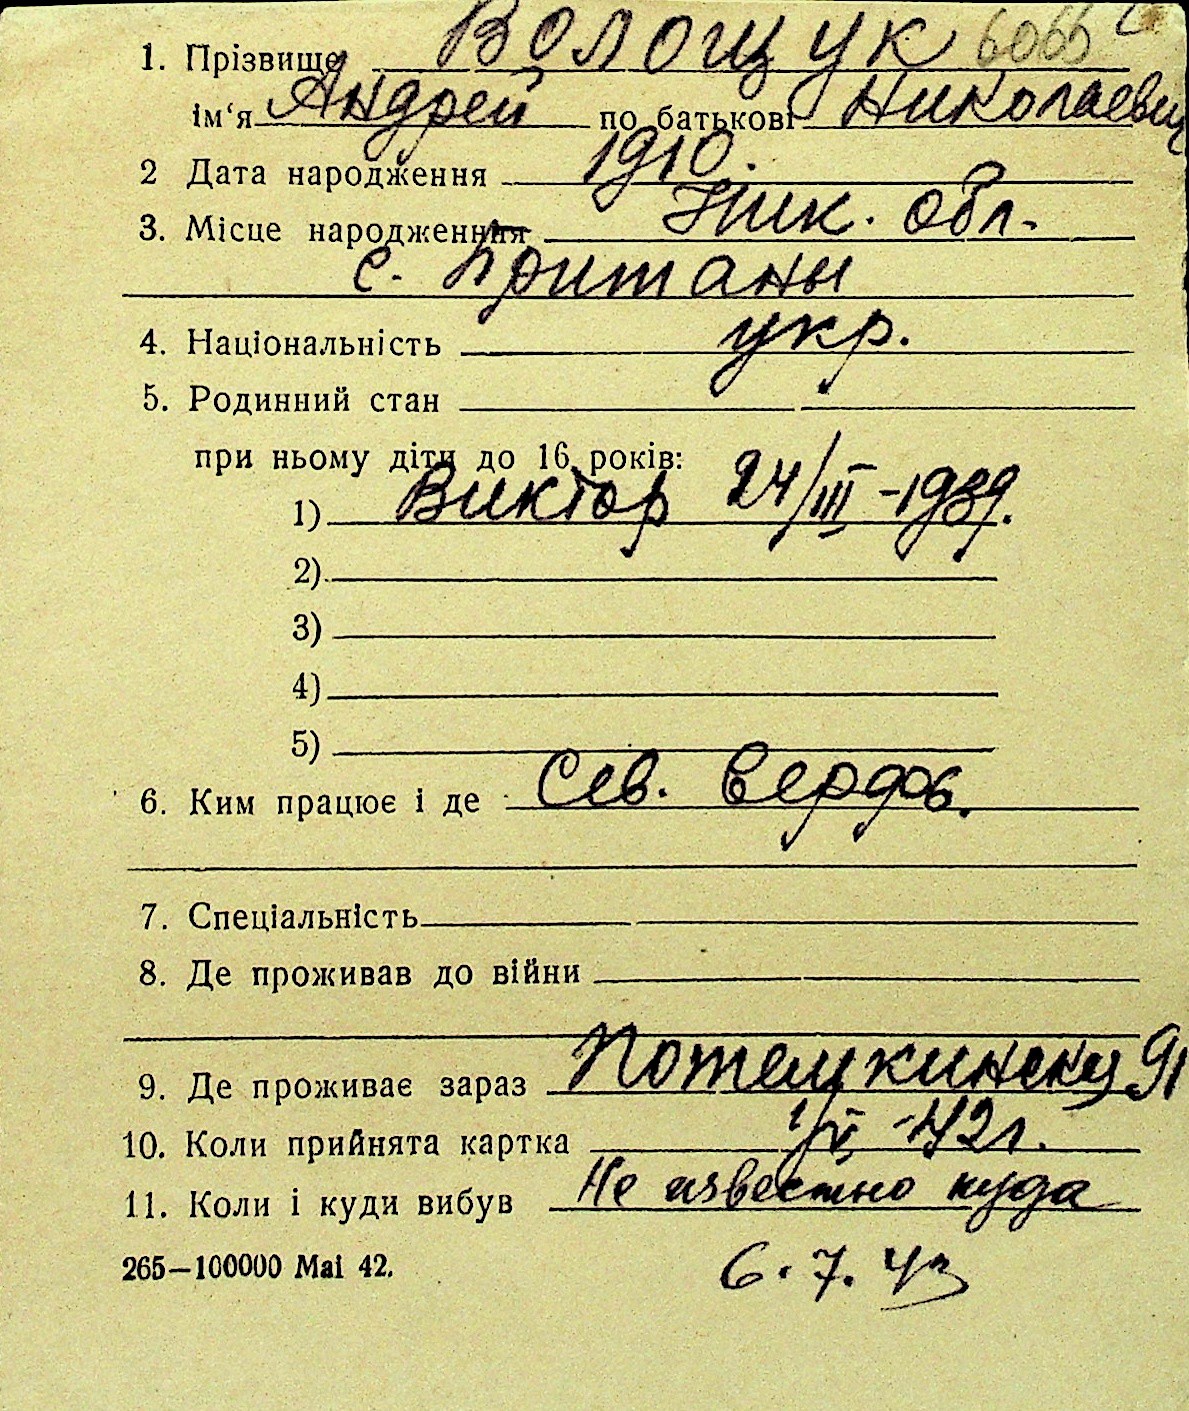 1. Прізвище Волощук 6065
ім'я Андрей по батькові Николаевич
2 Дата народження 1910.
3. Місце народженння Ник. обл.
с. Британы
4. Національність укр.
5. Родинний стан
при ньому діти до 16 років:
1) Виктор 24/III-1939.
2)
3)
4)
5)
6. Ким працює і де Сев. верфь.
7. Спеціальність
8. Де проживав до війни
9. Де проживає зараз Потемкинску 91
10. Коли прийнята картка 1/V-42г.
11. Коли і куди вибув Не известно куда
265—100000 Mai 42. 6.7.43